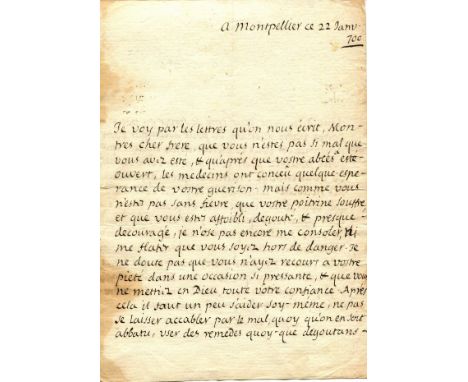 A Montpellier ce 22 Janv.
700
Je voy par les lettres qu'on nous écrit, Mon
tres cher frere, que vous n'estes pas si mal que
vous aviz esté, & qu'aprés que vostre abcés a esté
ouvert, les medecins ont conceu quelque espe-
rance de vostre guerison. mais comme vous
n'estes pas sans fievre, que vostre poitrine souffre
et que vous estes affoibli, degouté, & presque
decouragé, je n'ose pas encore me consoler, ni
me flater que vous soyiz hors de danger. Je
ne doute pas que vous n'ayiz recours a vostre
pieté dans une occasion si pressante, & que vous
ne mettiiz en Dieu toute vostre confiance. Aprés
cela il faut un peu s'aider soy-méme, ne pas
se laisser accabler par le mal, quoy qu'on en soit
abbatu, user des remedes quoy-que degoutans-